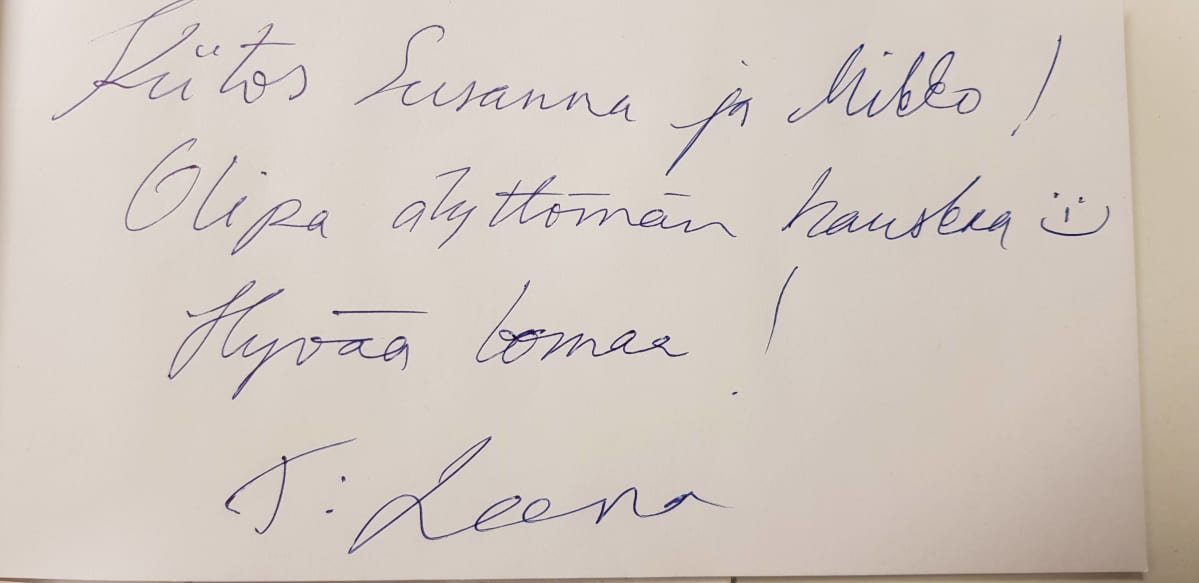 Kiitos Susanna ja Mikko!
Olipa älyttömän hauskaa :)
Hyvää lomaa!
T: Leena